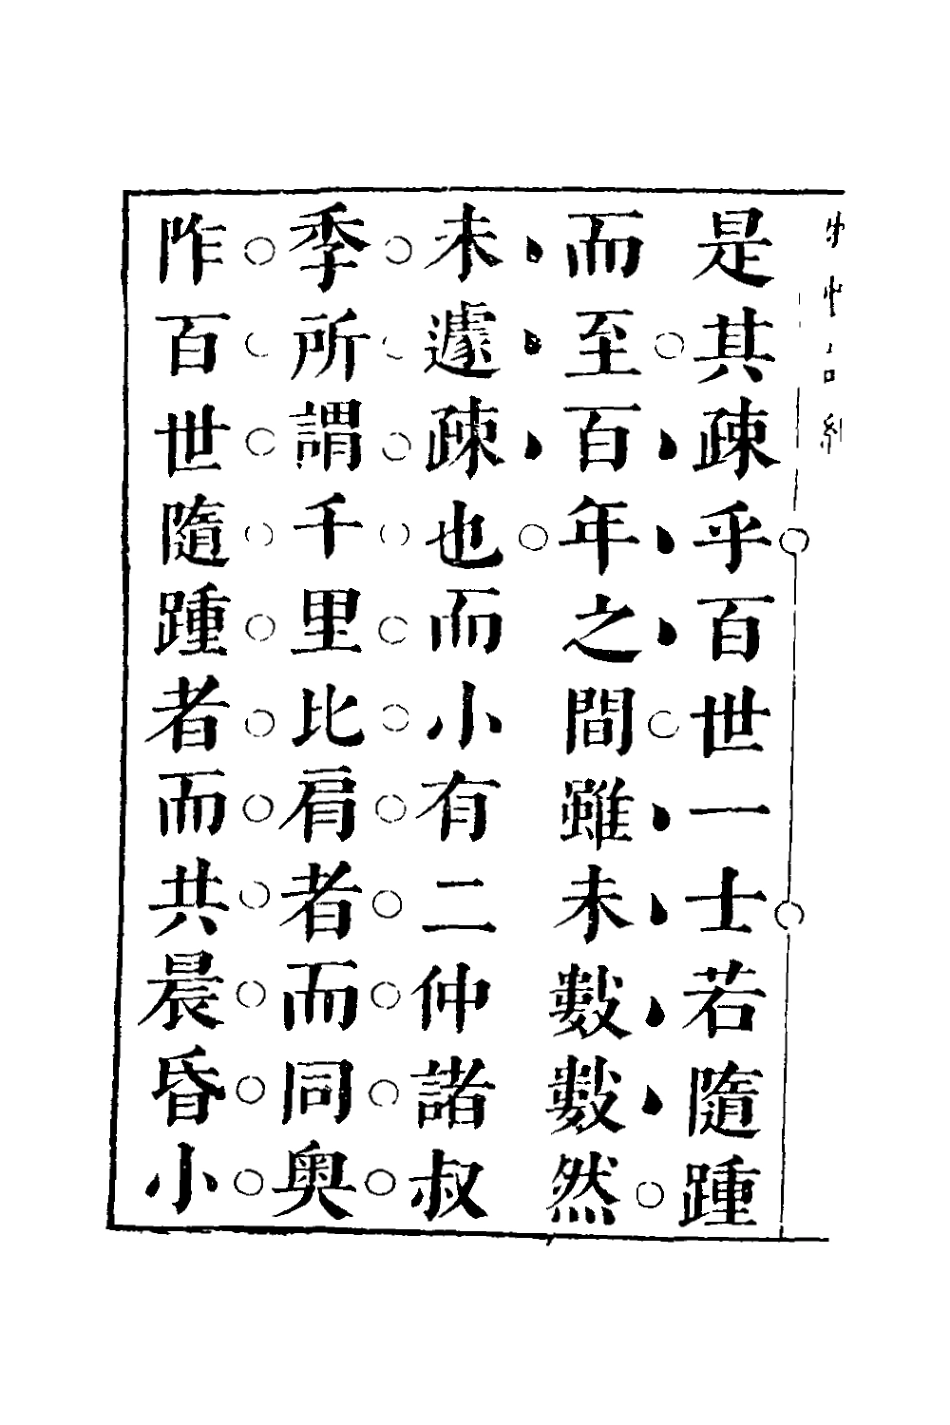 是其疎乎百世一士若隨踵
而至百年之間雖未數數然
未遽疎也而小有二仲諸叔
季所謂千里比肩者而同奧
阼百世隨踵者而共晨昏小